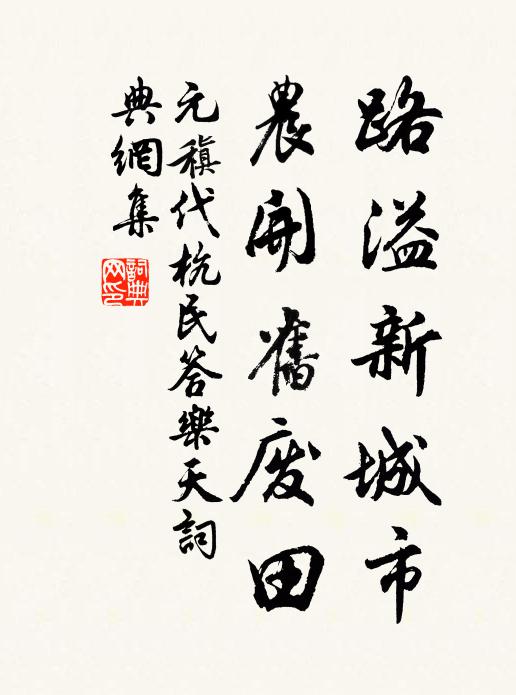 路溢新城市
農開舊廢田
元稹代杭民答樂天詞
典網集
詞典
网印